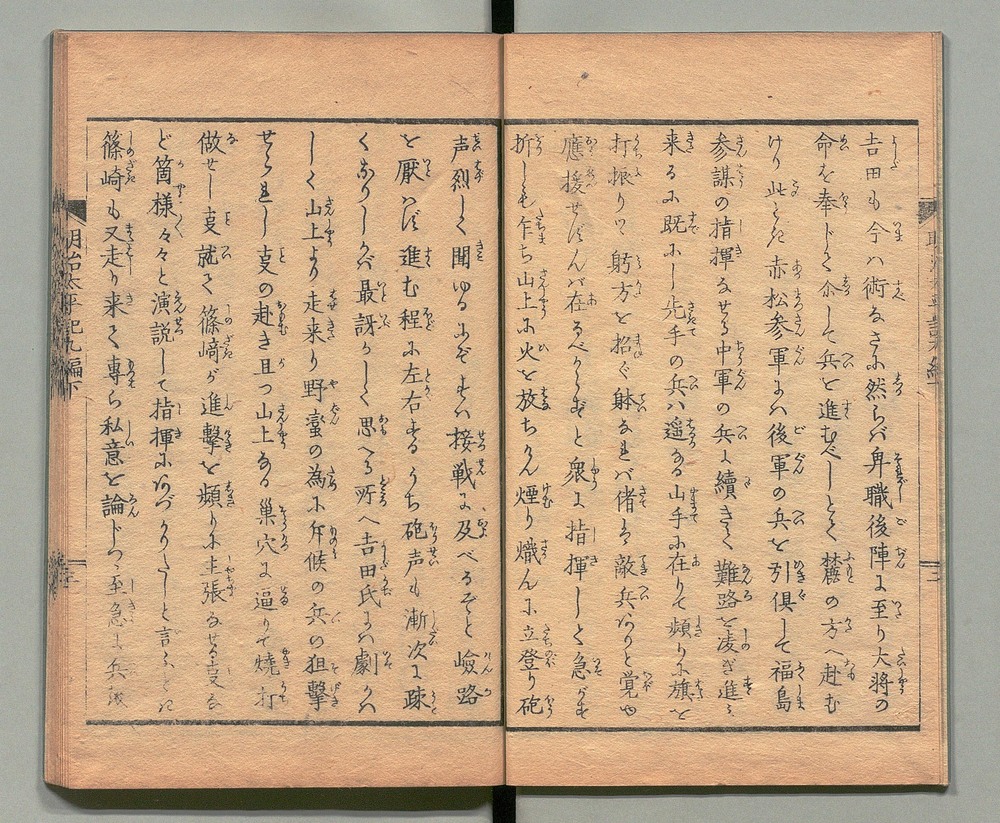 吉田も今ハ術なさに然らバ卑職後陣に至り大将の
命を奉じて介して兵を進むべしとて麓の方へ赴む
けり此とき赤松参軍にハ後軍の兵を引倶して福島
参謀の指揮なせる中軍の兵に續きて難路を凌ぎ進ミ
来るに既にし先手の兵ハ遥なる山手に在りて頻りに旗を
打振りツヽ躬方を招ぐ躰なれバ偖ハ敵兵ありと覚ゆ
應援せずんバ在るべからずと衆に指揮しと急がす
折しも乍ち山上に火を放ちけん煙り熾んに立登り砲
声烈しく聞ゆるにぞすハ接戦に及べるぞと嶮路
を厭はず進む程に左右するうち砲声も漸次に疎
くなりしかバ最訝かしく思へる所へ吉田氏にハ劇かハ
しく山上より走来り野蛮の為に斥候の兵の狙撃
せられし支の赴き且つ山上なる巣穴に逼りて焼打
做せし支就て篠﨑が進撃を頻りに主張なせる支な
ど箇様々々と演説して指揮にあづかりたしと言ふとき
篠崎も又走り来て専ら私意を論じつヽ至急に兵
明治太平記九編下